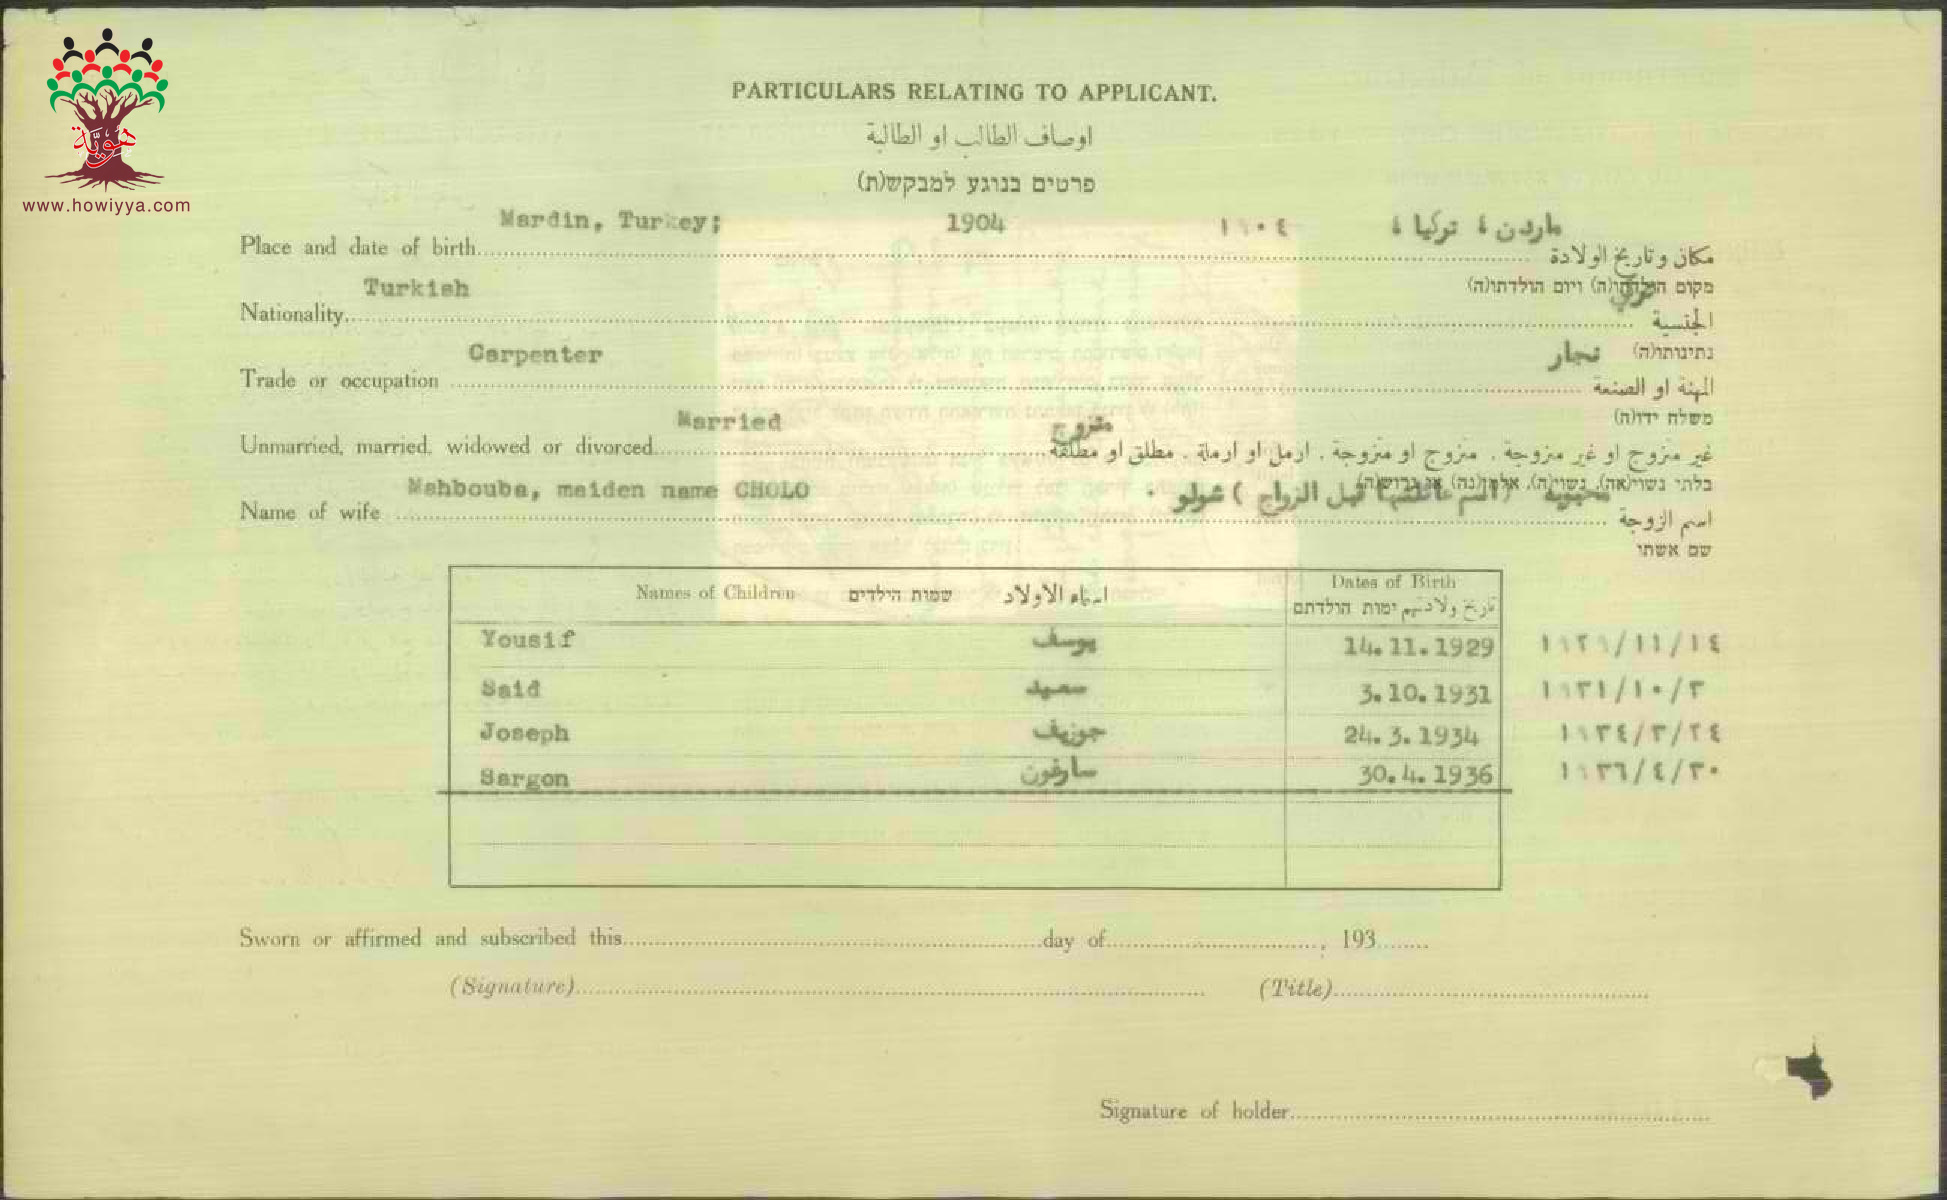 هوية
www.howiyya.com
PARTICULARS RELATING TO APPLICANT.
اوصاف الطالب او الطالبة
פרטים בנוגע למבקש(ת)
Mardin, Turkey; 1904 ١٩٠٤ ماردن ، تركيا ،
Place and date of birth مكان وتاريخ الولادة
Turkish מקום הולדתו(ה) ויום הולדתו(ה) تركي
Nationality الجنسية
Carpenter نجار נתינותו(ה)
Trade or occupation المهنة او الصنعة
Married متزوج משלח ידו(ה)
Unmarried, married, widowed or divorced غير متزوج او غير متزوجة . متزوج او متزوجة . ارمل او ارملة . مطلق او مطلقة
Mahbouba, maiden name CHOLO محبوبة (اسم عائلتها قبل الزواج ) شولو . בלתי נשוי(אה), נשוי(ה), אלמן(נה) או גרוש(ה)
Name of wife اسم الزوجة
שם אשתו
Names of Children שמות הילדים اسماء الاولاد Dates of Birth
ימות הולדתם تاريخ ولادتهم
Yousif يوسف 14.11.1929 ١٩٢٩/١١/١٤
Said سعيد 3.10.1931 ١٩٣١/١٠/٣
Joseph جوزيف 24.3.1934 ١٩٣٤/٣/٢٤
Sargon سارغون 30.4.1936 ١٩٣٦/٤/٣٠
Sworn or affirmed and subscribed this day of , 193
(Signature) (Title)
Signature of holder